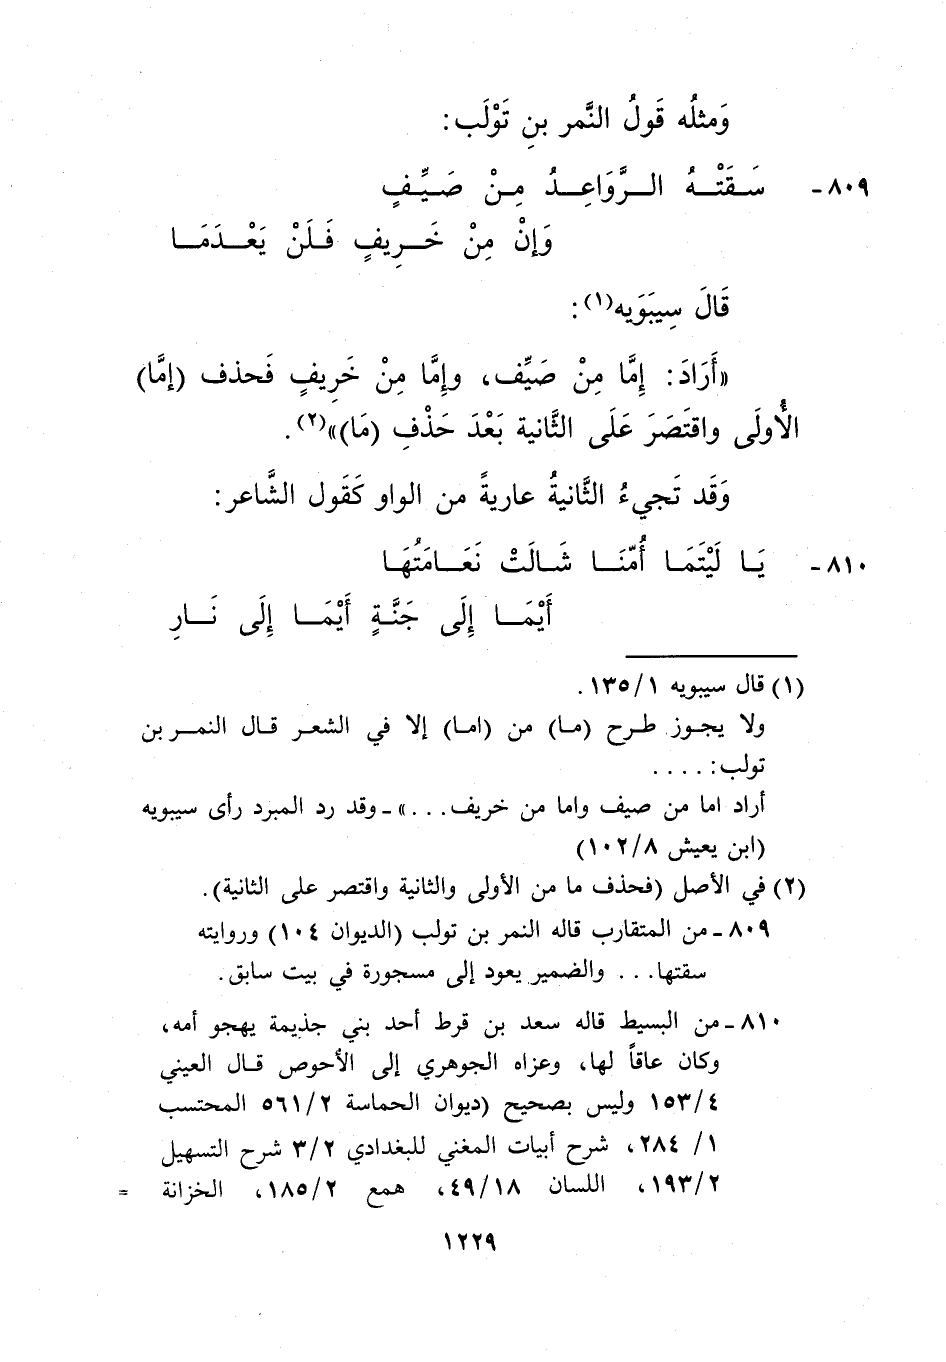 وَمثلُه قَولُ النَّمر بنِ تَوْلَب:
٨٠٩- سَقَتْهُ الرَّوَاعِدُ مِنْ صَيِّفٍ
وَإنْ مِنْ خَرِيفٍ فَلَنْ يَعْدَمَا
قَالَ سِيبَوَيه(١):
«أَرَادَ: إِمَّا مِنْ صَيِّف، وإِمَّا مِنْ خَرِيفٍ فَحذف (إمَّا)
الأُولَى واقتَصَرَ عَلَى الثَّانية بَعْدَ حَذْفِ (مَا)»(٢).
وَقَد تَجيءُ الثَّانيةُ عاريةً من الواو كَقَول الشَّاعر:
٨١٠- يَا لَيْتَمَا أُمّنَا شَالَتْ نَعَامَتُهَا
أَيْمَا إِلَى جَنَّةٍ أَيْمَا إِلَى نَارِ
(١) قال سيبويه ١٣٥/١.
ولا يجوز طرح (ما) من (اما) إلا في الشعر قال النمر بن
تولب: ....
أراد اما من صيف واما من خريف...» - وقد رد المبرد رأى سيبويه
(ابن يعيش ١٠٢/٨)
(٢) في الأصل (فحذف ما من الأولى والثانية واقتصر على الثانية).
٨٠٩ - من المتقارب قاله النمر بن تولب (الديوان ١٠٤) وروايته
سقتها... والضمير يعود إلى مسجورة في بيت سابق.
٨١٠ - من البسيط قاله سعد بن قرط أحد بني جذيمة يهجو أمه،
وكان عاقاً لها، وعزاه الجوهري إلى الأحوص قال العيني
١٥٣/٤ وليس بصحيح (ديوان الحماسة ٥٦١/٢ المحتسب
٢٨٤/١، شرح أبيات المغني للبغدادي ٣/٢ شرح التسهيل
١٩٣/٢، اللسان ٤٩/١٨، همع ١٨٥/٢، الخزانة =
١٢٢٩